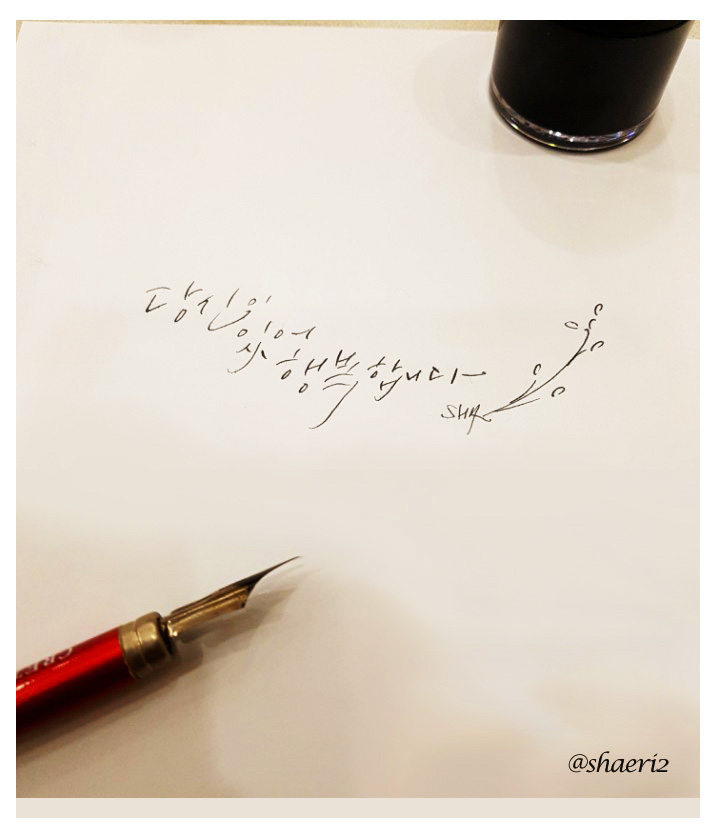 당신이
있어
행복합니다
@shaeri2